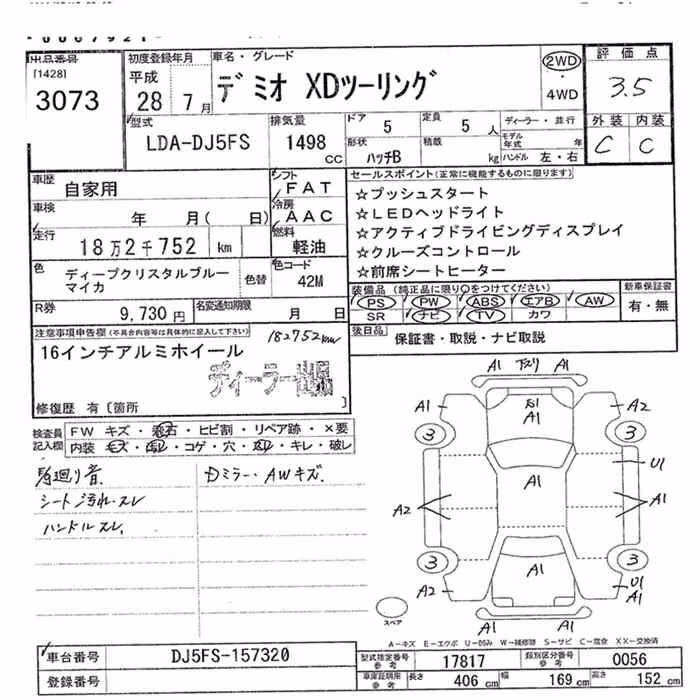 出品番号
[1428]
3073
初度登録年月
平成
28年 7月
車名・グレード
デミオ XDツーリング
2WD
・
4WD
評価点
3.5
外装 内装
C C
型式
LDA-DJ5FS
排気量
1498
CC
ドア 5
定員 5 人
形状 ハッチB
積載 kg
ディーラー・並行
モデル年式 年
ハンドル 左・右
車歴 自家用
シフト FAT
車検 年 月( 日)
冷房 AAC
走行 18万2千752 km
燃料 軽油
色 ディープクリスタルブルーマイカ
色替
色コード 42M
R券 9,730 円
名変通知期限 月 日
セールスポイント(正常に機能するものに限ります)
☆プッシュスタート
☆LEDヘッドライト
☆アクティブドライビングディスプレイ
☆クルーズコントロール
☆前席シートヒーター
装備品 (純正品に限り○をつけてください)
PS PW ABS エアB AW
SR ナビ TV カワ
新車保証書
有・無
後日品 保証書・取説・ナビ取説
注意事項申告欄(不具合内容等は具体的に記入して下さい)
182752km
16インチアルミホイール
ディーラー出品
修復歴 有〔箇所 〕
検査員記入欄
FW キズ・飛石・ヒビ割・リペア跡・×要
内装 キズ・汚レ・コゲ・穴・スレ・キレ・破レ
廻り音
Dミラー・AWキズ.
シート汚れ・スレ
ハンドルスレ.
A1 下スリ A1
A1 A1 A2
3 A1 3
A1 U1
A2 A1
3 A1 3
A2 A1 U1
A1
A1
スペア
A-キズ E-エクボ U-凹み W-補修跡 S-サビ C-腐食 XX-交換済
車台番号 DJ5FS-157320
登録番号
型式指定番号 参考 17817
類別区分番号 参考 0056
車庫証明 参考 長さ 406 cm 幅 169 cm 高さ 152 cm